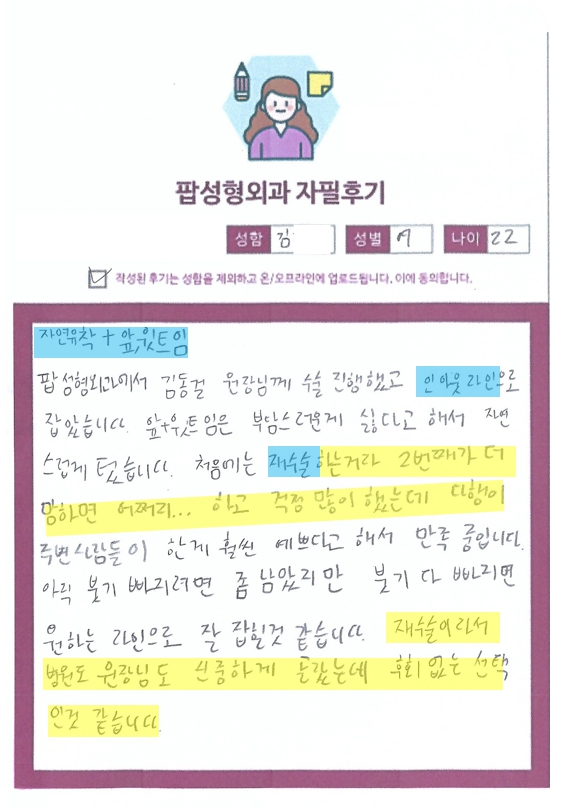 팝성형외과 자필후기
성함 김 성별 여 나이 22
작성된 후기는 성함을 제외하고 온/오프라인에 업로드됩니다. 이에 동의합니다.
자연유착 + 앞,윗트임
팝성형외과에서 김동걸 원장님께 수술 진행했고 인아웃라인으로
잡았습니다. 앞+윗트임은 부담스러운게 싫다고 해서 자연
스럽게 텄습니다. 처음에는 재수술하는거라 2번째가 더
망하면 어쩌지... 하고 걱정 많이 했는데 다행이
주변사람들이 한게 훨씬 예쁘다고 해서 만족 중입니다.
아직 붓기 빠지려면 좀 남았지만 붓기 다 빠지면
원하는 라인으로 잘 잡힐것 같습니다. 재수술이라서
병원도 원장님도 신중하게 골랐는데 후회 없는 선택
인것 같습니다.